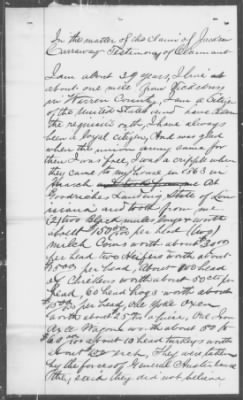 In the matter of the claim of Jackson
Carraway Testimony of Claimant
I am about 39 years, I live at
about one mile from Vicksburg
in Warren County, I am a citizen
of the United States, I have taken
the requisite oath, I have always
been a loyal citizen, And was glad
when the union army came for
then I was free, I was a cripple when
they came to my house in 1863 in
March at
Goodriches Landing State of Lou
isiana and took from me
2 two Black mules large & worth
about $150.00 per head (two)
milch Cows worth about 30.00
per head two Heifers worth about
per head, about 100 head
of Chickens worth about 50 cts per
head, 60 head hogs worth about
per head, One Yoke Oxen
worth about a pair, One Iron
Axle Wagon worth about 50 to
60, about 10 head turkeys worth
about each, They were taken
by the forces of General
they said they did not believe